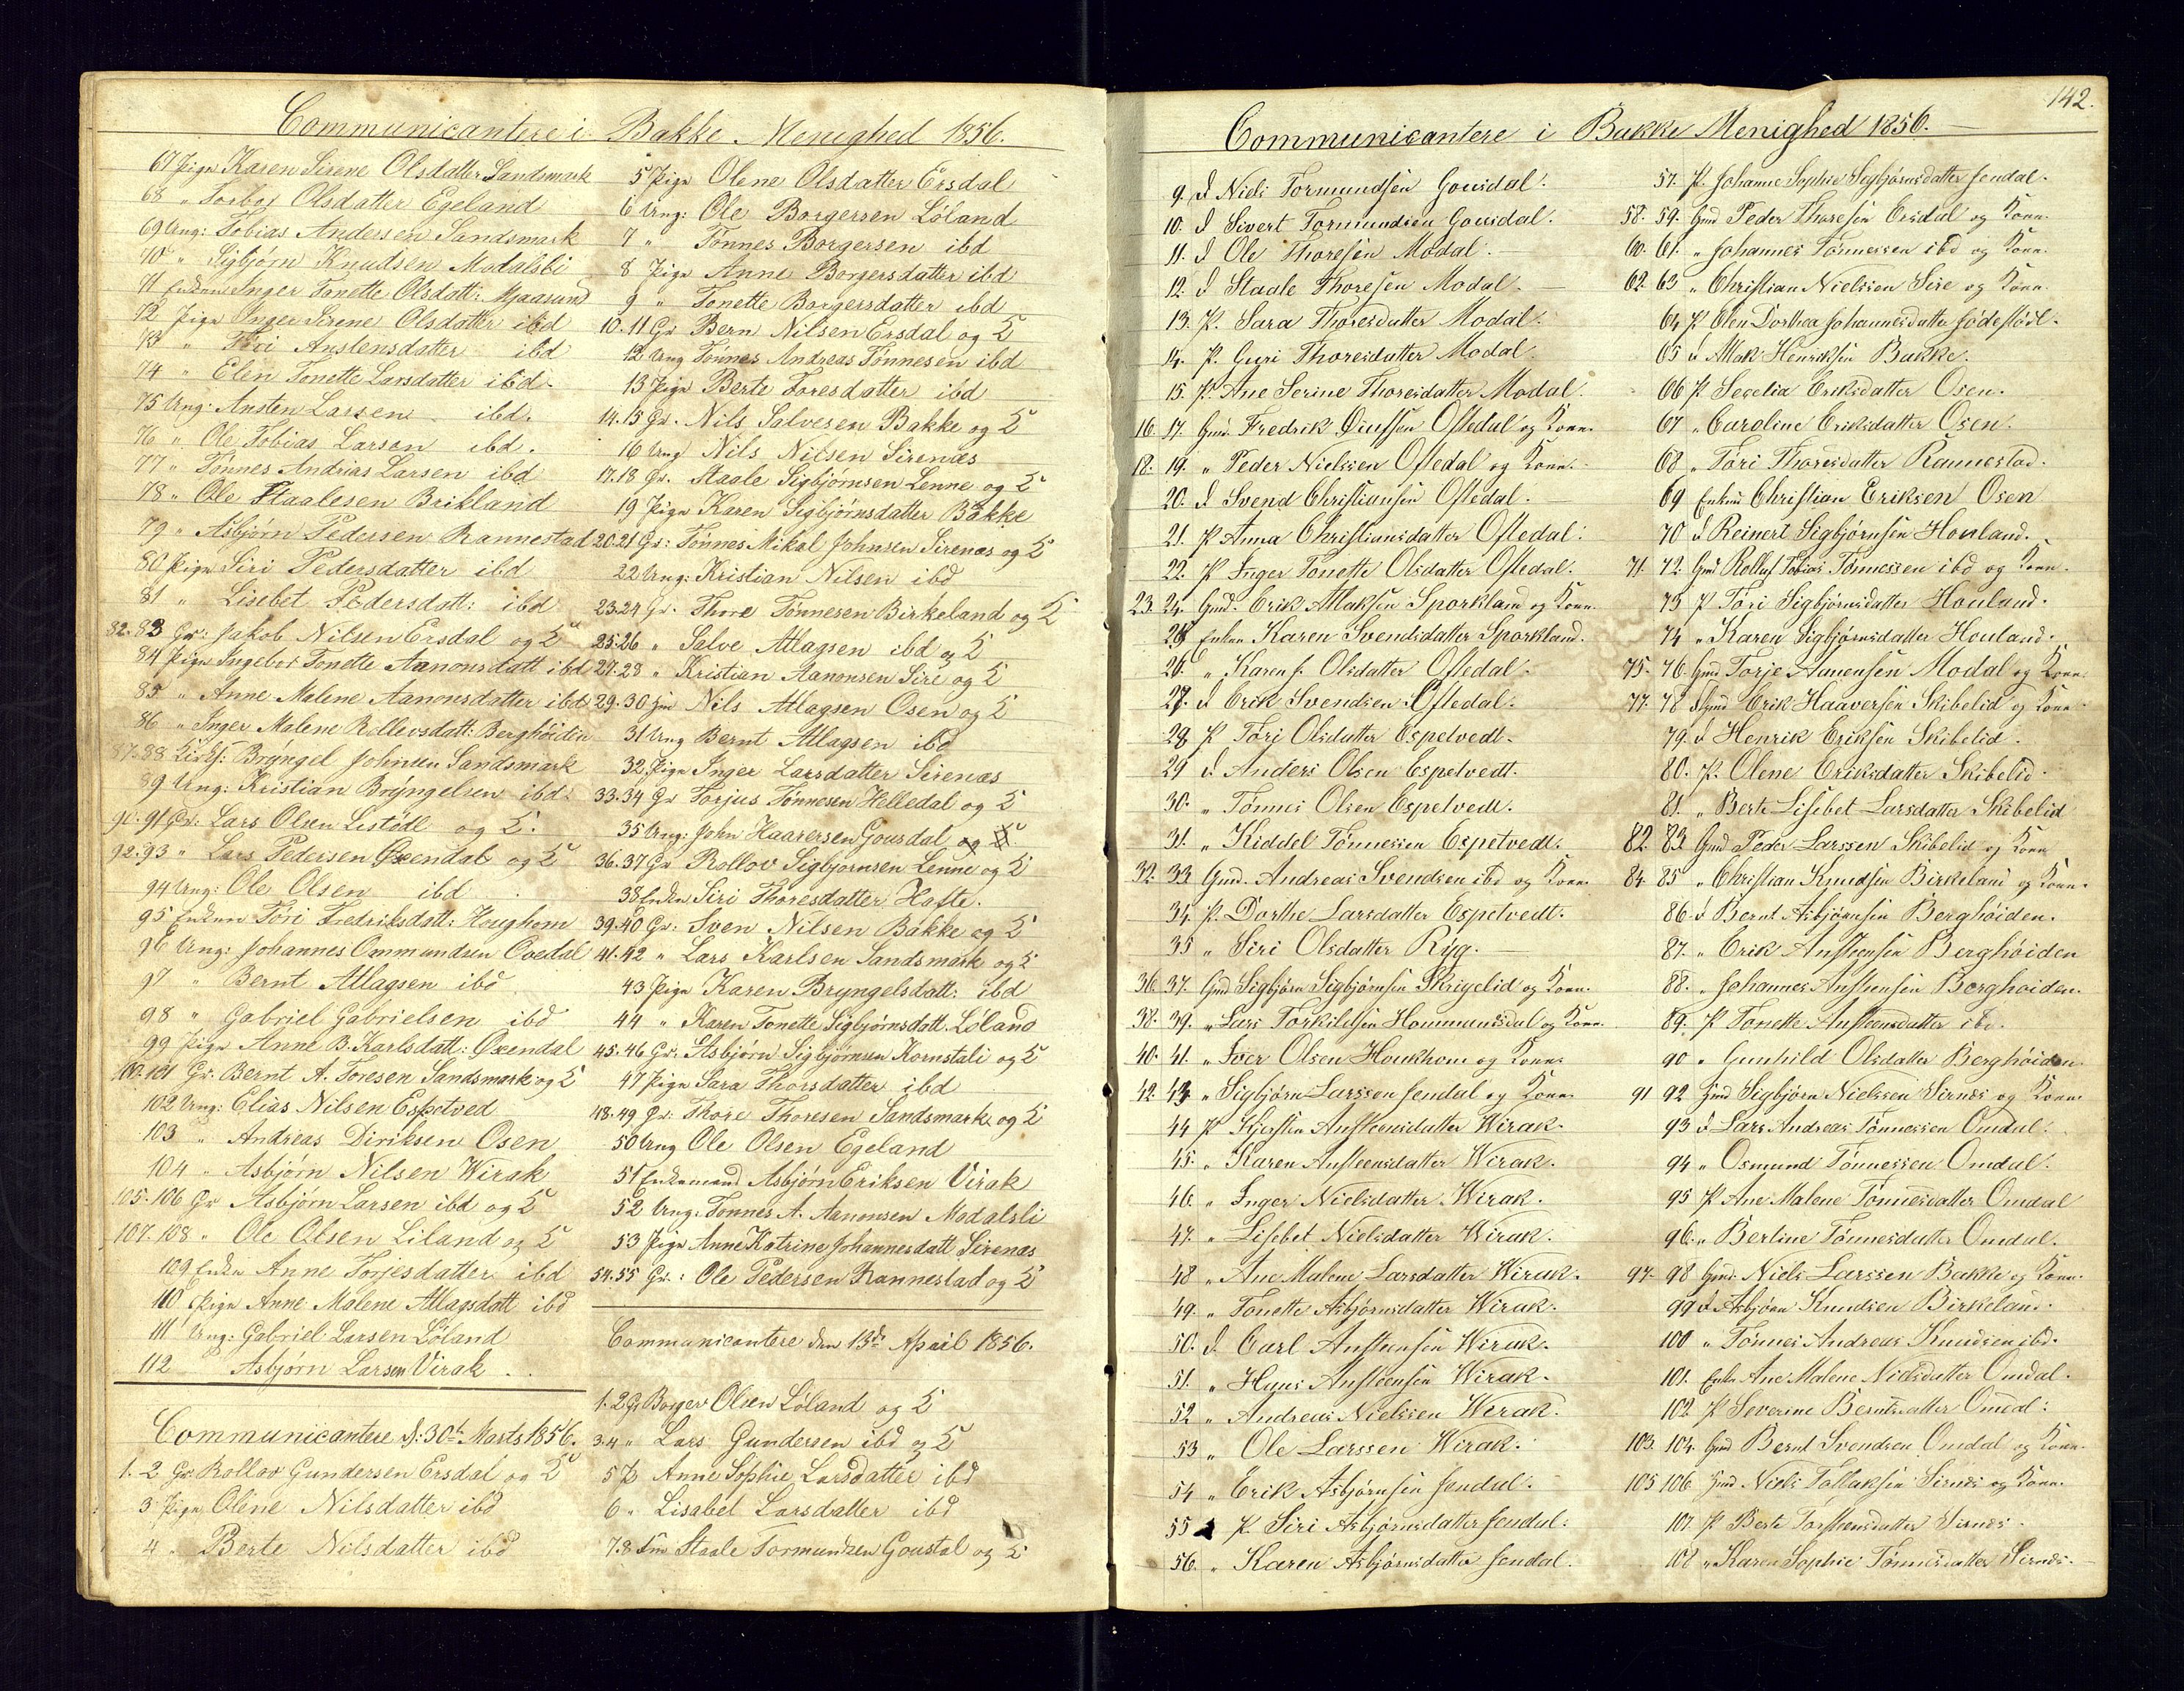 Communicantere i Bakke Menighed 1856.
67 Pige Karen Sirene Olsdatter Sandsmark
68 " Torbor Olsdatter Egeland
69 Ung: Tobias Andersen Sandsmark
70 " Sigbjørn Knudsen Modalsli
71 Enken Inger Tonette Olsdatt: Mjaasund
72 Pige Inger Sirene Olsdatter ibd
73 " Tori Anstensdatter ibd
74 " Elen Tonette Larsdatter ibd.
75 Ung: Ansten Larsen ibd.
76 " Ole Tobias Larsen ibd.
77 " Tønnes Andrias Larsen ibd
78 " Ole Staalesen Brikland
79 " Asbjørn Pedersen Rannestad
80 Pige Siri Pedersdatter ibd
81 " Lisebet Pedersdatt: ibd
82.83 Gr: Jakob Nilsen Ersdal og K
84 Pige Ingebor Tonette Aanonsdatt ibd
85 " Anne Malene Aanonsdatter ibd
86 " Inger Malene Rollevsdatt: Berghöiden
87.88 Brÿngel Johnsen Sandsmark
89 Ung: Kristian Brÿngelsen ibd.
90.91 Gr: Lars Olsen Listödl og K.
92.93 " Lars Pedersen Øxendal og K
94 Ung: Ole Olsen ibd
95 Enken Tóri Fredriksdatt: Houghom
96 Ung: Johannes Ommundsen Ovedal
97 " Bernt Atlagsen ibd
98 " Gabriel Gabrielsen ibd
99 Pige Anne B. Karlsdatt: Øxendal
100.101 Gr. Bernt A. Toresen Sandsmark og K
102 Ung: Elias Nilsen Espetved
103 " Andreas Diriksen Osen
104 " Asbjørn Nilsen Wirak
105.106 Gr Asbjørn Larsen ibd og K
107.108 " Ole Olsen Liland og K
109 Enke Anne Torjesdatter ibd
110 Pige Anne Malene Atlagsdatt ibd
111 Ung: Gabriel Larsen Löland
112 Asbjørn Larsen Virak
Communicantere d: 30te Marts 1856.
1.2 Gr. Rollav Gundersen Ersdal og K
3 Pige Oline Nilsdatter ibd
4 " Berte Nilsdatter ibd
5 Pige Olene Olsdatter Ersdal
6 Ung: Ole Borgersen Löland
7 " Tönnes Borgersen ibd
8 Pige Anne Borgersdatter ibd
9 " Tonette Borgersdatter ibd
10.11 Gr Bern Nilsen Ersdal og K
12 Ung Tönnes Andreas Tönnesen ibd
13 Pige Berte Toresdatter ibd
14.15 Gr. Nils Salvesen Bakke og K
16 Ung Nils Nilsen Sirenæs
17.18 Gr. Staale Sigbjørnsen Lenne og K
19 Pige Karen Sigbjørnsdatter Bakke
20.21 Gr: Tönnes Mikal Johnsen Sirenæs og K
22 Ung: Kristian Nilsen ibd
23.24 Gr. Thore Tönnesen Birkeland og K
25.26 " Salve Atlagsen ibd og K
27.28 " Kristian Aanonsen Siri og K
29.30 Gm Nils Atlagsen Osen og K
31 Ung Bernt Atlagsen ibd
32 Pige Inger Larsdatter Sirenæs
33.34 Gr Torjus Tönnesen Helledal og K
35 Ung: John Haaversen Gousdal og K
36.37 Gr Rollov Sigbjørnsen Lenne og K
38 Enken Siri Thoresdatter Hafte.
39.40 Gr: Sven Nilsen Bakke og K
41.42 " Lars Karlsen Sandsmark og K
43 Pige Karen Bryngelsdatt: ibd
44 " Karen Tonette Sigbjørnsdatt. Löland
45.46 Gr: Asbjörn Sigbjørnsen Kornstali og K
47 Pige Sara Thorsdatter ibd
48.49 Gr: Thore Thoresen Sandsmark og K
50 Ung Ole Olsen Egeland
51 Enkemand Asbjørn Eriksen Virak
52 Ung: Tonnes A. Aanonsen Modalsli
53 Pige Anne Katrine Johannesdatt Sirenæs
54.55 Gr.: Ole Pedersen Rannestad og K
Communicantere den 13de April 1856.
1.2 Gr Borger Olsen Löland og K
3.4 " Lars Gundersen ibd og K
5 P Anne Sophie Larsdatter ibd
6 " Lisabel Larsdatter ibd
7.8 Gm Staale Tormundsen Goustal og K
142.
Communicantere i Bakke Menighed 1856.
9. U Niels Tormundsen Gousdal.
10. U Sivert Tormundsen Gousdal.
11. U Ole Thoresen Modal.
12. U Staale Thoresen Modal.
13. P. Sara Thoresdatter Modal.
14. P. Guri Thoresdatter Modal.
15. P. Ane Serine Thoresdatter Modal.
16. 17. Gmd. Fredrik Oftedal og Kone.
18. 19. " Peder Nielssen Oftedal og Kone.
20. U Svend Christiansen Oftedal.
21. P Anna Christiansdatter Oftedal.
22. P Inger Tonette Olsdatter Oftedal.
23. 24. Gmd. Erik Atlaksen Sporkland og Kone.
25. Enken Karen Svendsdatter Sporkland.
26. " Karen S. Olsdatter Oftedal.
27. U Erik Svendsen Oftedal.
28 P Tori Olsdatter Espetvedt.
29 U Anders Olsen Espetvedt.
30. " Tönnes Olsen Espetvedt.
31. " Kiddel Tönnessen Espetvedt.
32. 33 Gmd. Andreas Svendsen ibd og Kone.
34 P. Dorthe Larsdatter Espetvedt.
35 " Siri Olsdatter Ryg.
36 37. Gmd Sigbjørn Sigbjørnsen Skrigelid og Kone.
38. 39. " Lars Torkildsen Hommansdal og Kone.
40. 41. " Iver Olsen Houkhom og Kone.
42. 43 " Sigbjørn Larssen Fendal og Kone.
44 P Kjersten Ansteensdatter Wirak.
45. " Karen Ansteensdatter Wirak.
46. " Inger Nielsdatter Wirak.
47. " Lisebet Nielsdatter Wirak.
48 " Ane Malene Larsdatter Wirak.
49. " Tonette Asbjørnsdatter Wirak.
50. U. Carl Ansteensen Wirak.
51. " Hans Ansteensen Wirak.
52 " Andreas Nielssen Wirak.
53 " Ole Larssen Wirak.
54 " Erik Asbjørnsen Fendal.
55 P. Siri Asbjørnsdatter Fendal.
56. " Karen Asbjørnsdatter Fendal.
57. P. Johanne Sophie Sigbjørnsdatter Fendal.
58. 59. Gmd Peder Thoresen Ersdal og Kone.
60. 61. " Johannes Tönnessen ibd og Kone.
62. 63 " Christian Nielssen Sire og Kone.
64 P Elen Dorthea Johannesdatter
65 U Atlak Henriksen Bakke.
66 P Secelia Eriksdatter Osen.
67 " Caroline Eriksdatter Osen.
68 " Töri Thoresdatter Rannestad.
69 Enkmd Christian Eriksen Osen
70 U Reinert Sigbjørnsen Houland.
71. 72. Gmd Rolluf Tobias Tönnessen ibd og Kone.
73 P Töri Sigbjørnsdatter Houland.
74 " Karen Sigbjørnsdatter Houland.
75. 76. Gmd Torje Aanensen Modal og Kone.
77. 78 Gmd Erik Haaversen Skibelid og Kone.
79. U Henrik Eriksen Skibelid.
80. P. Olene Eriksdatter Skibelid.
81. " Berte Lisebet Larsdatter Skibelid
82. 83. Gmd Peder Larssen Skibelid og Kone
84. 85 " Christian Knudsen Birkeland og Kone.
86. U Bernt Asbjørnsen Berghöiden.
87. " Erik Ansteensen Berghöiden
88. " Johannes Ansteensen Berghoiden.
89. P Tonette Ansteensdatter ibd.
90 " Gunhild Olsdatter Berghöiden.
91 92 Gmd Sigbjørn Nielssen Sirnes og Kone.
93 U Lars Andreas Tönnessen Omdal.
94 " Osmund Tönnessen Omdal.
95 P Ane Malene Tönnesdatter Omdal
96. " Bertine Tönnesdatter Omdal.
97. 98 Gmd. Niels Larssen Bakke og Kone.
99 U Asbjørn Knudsen Birkeland.
100 " Tönnes Andreas Knudsen ibd.
101. Enke Ane Malene Nielsdatter Omdal.
102 P Severine Berntsdatter Omdal.
103. 104. Gmd Bernt Svendsen Omdal og Kone.
105 106 Gmd Niels Tollaksen Sirnes og Kone.
107. P Berte Torsteensdatter Sirnes.
108 " Karen Sophie Tönnesdatter Sirnes.